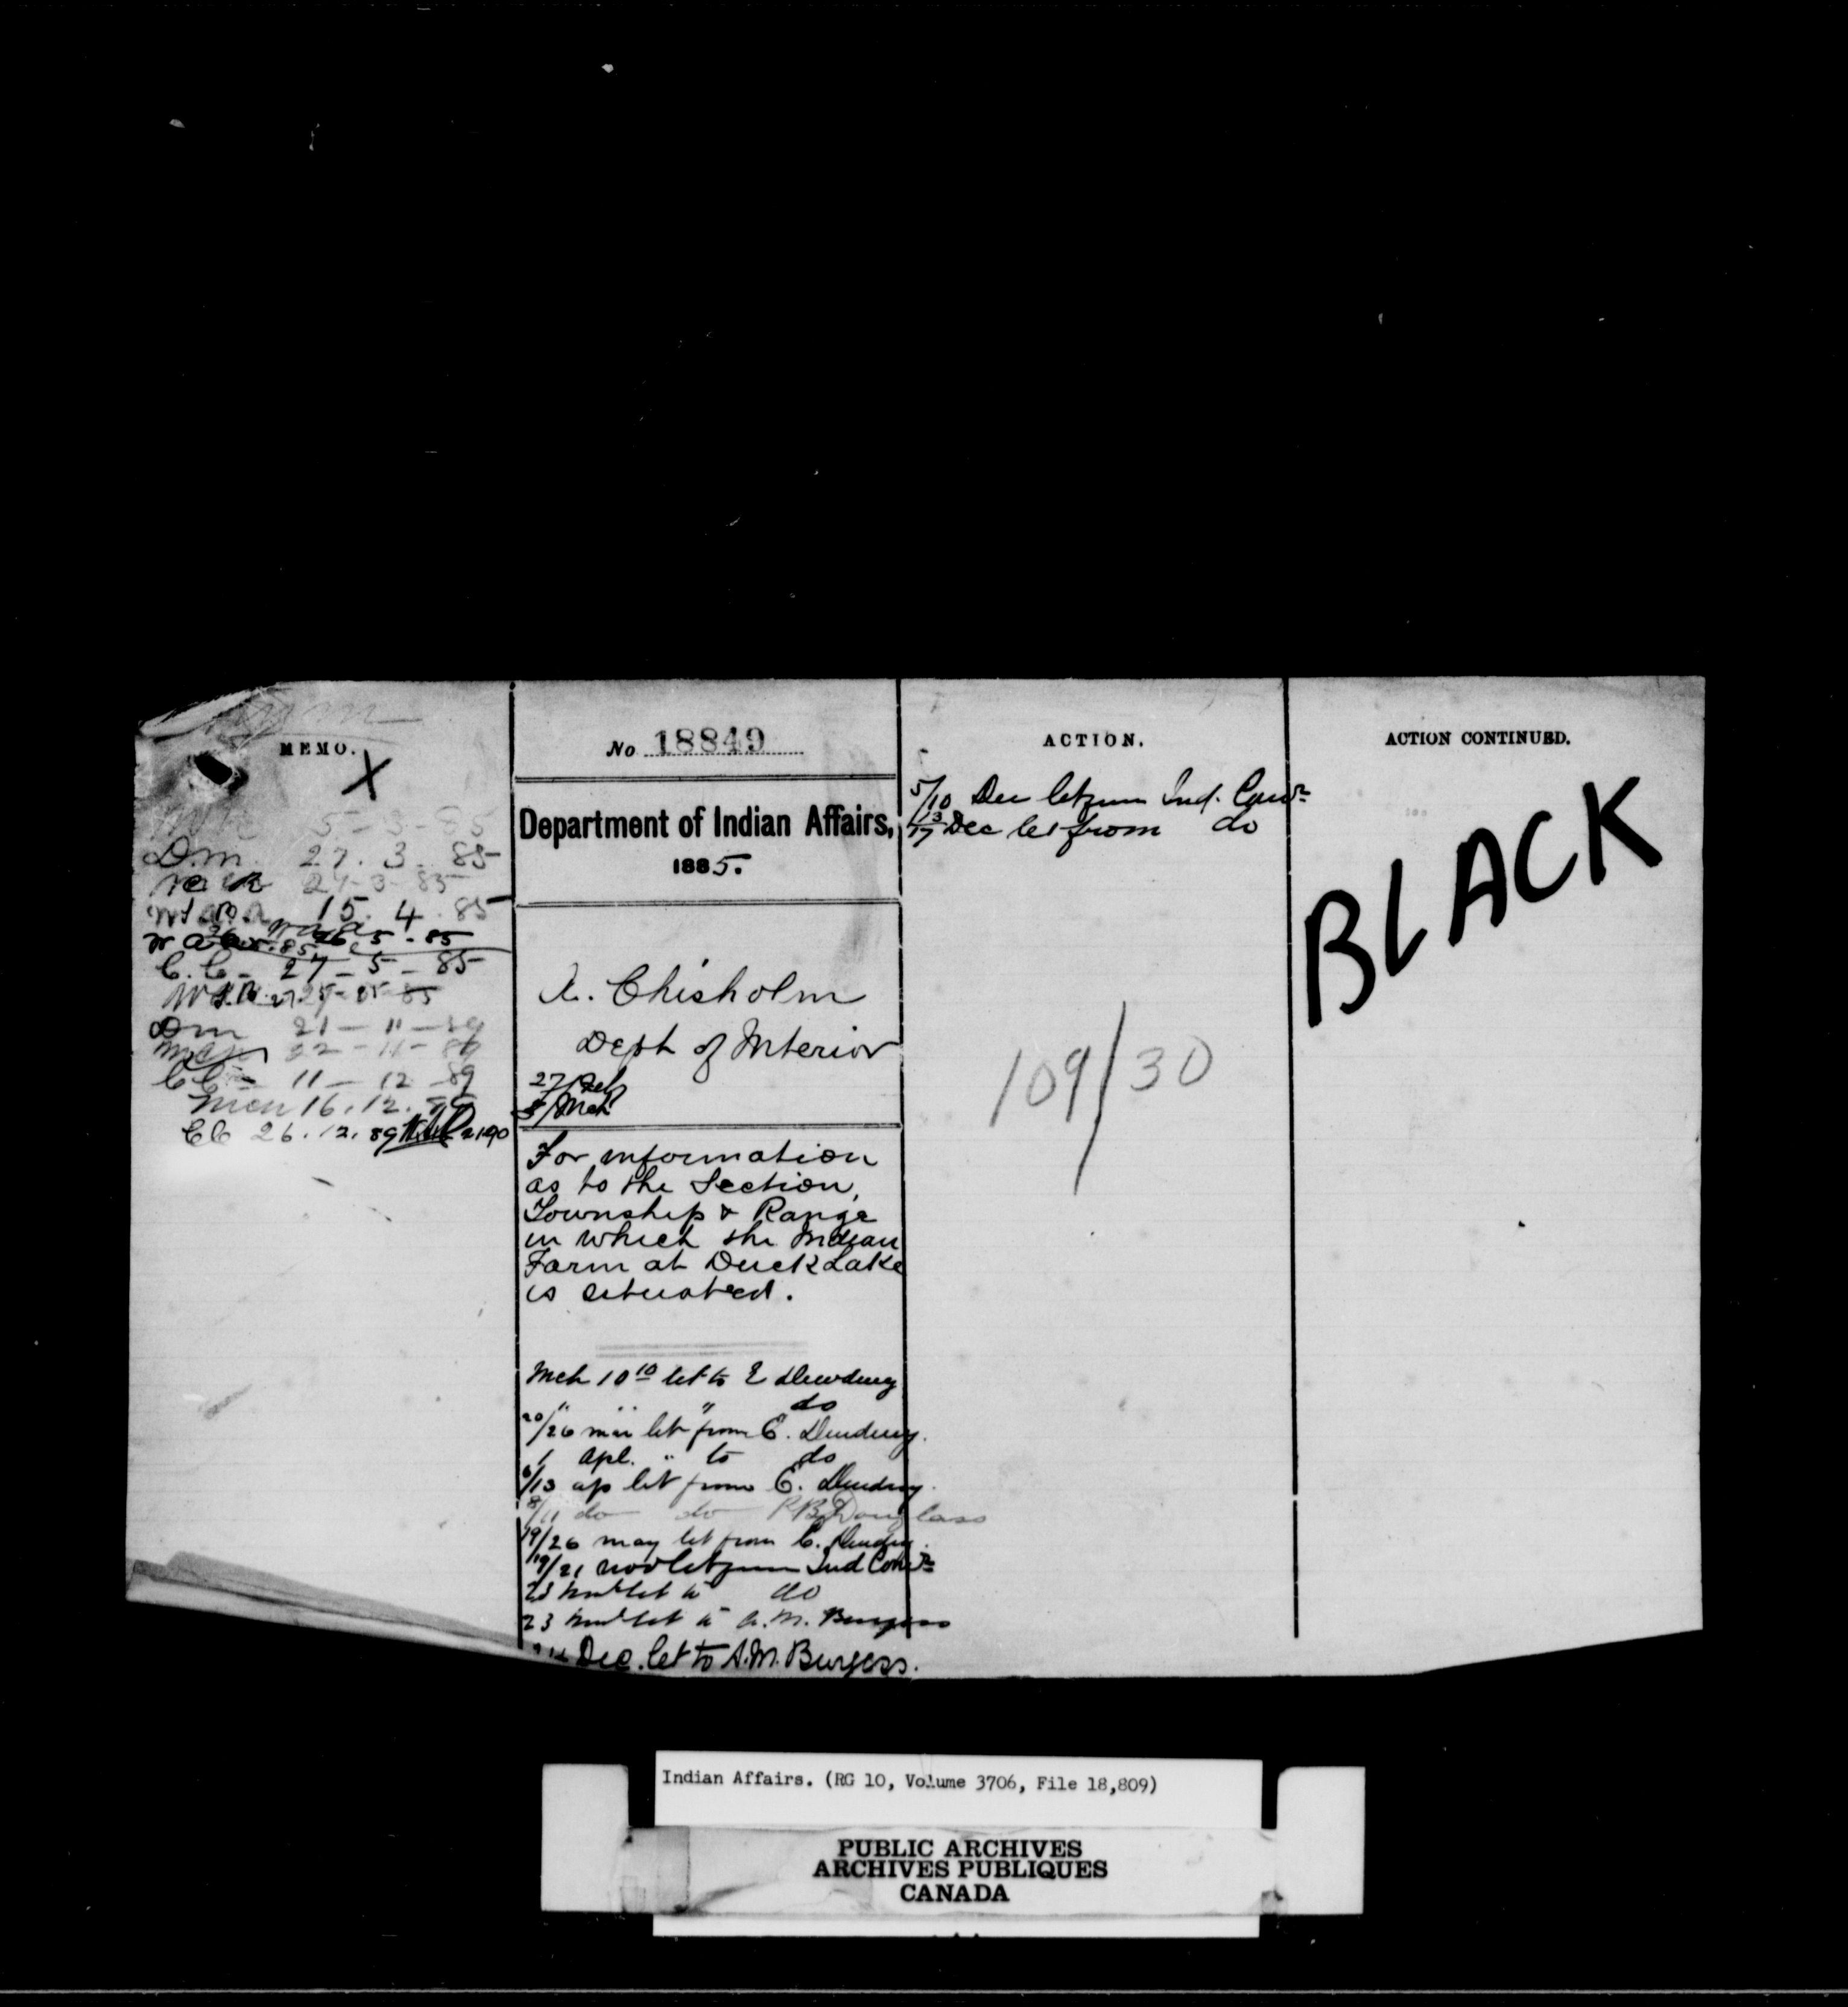 MEMO.
X
5-3-85
D.m. 27. 3. 85
24-3-85
15. 4. 85
26-5-85
C.C. 27-5-85
Dm 21-11-89
22-11-89
CC 11-12-89
16.12.89
CC 26.12.89
No 18849
Department of Indian Affairs,
1885.
A. Chisholm
Dept of Interior
27/Feb
5/Mch
For information
as to the Section,
Township & Range
in which the Indian
Farm at Duck Lake
is situated.
Mch 10 10 let to E Dewdney
" " " do
20/26 mar let from E. Dewdney.
1 Apl. " to do
6/13 ap let from E. Dewdney.
8/11 do do R B Douglass
19/26 may let from E. Dewdney.
19/21 nov let from Ind Comr
23 Nov let to do
23 Nov let to A. M. Burgess
Dec. let to A.M. Burgess.
ACTION.
5/10 Dec let from Ind. Comr
13/17 Dec let from do
109/30
ACTION CONTINUED.
BLACK
Indian Affairs. (RG 10, Volume 3706, File 18,809)
PUBLIC ARCHIVES
ARCHIVES PUBLIQUES
CANADA